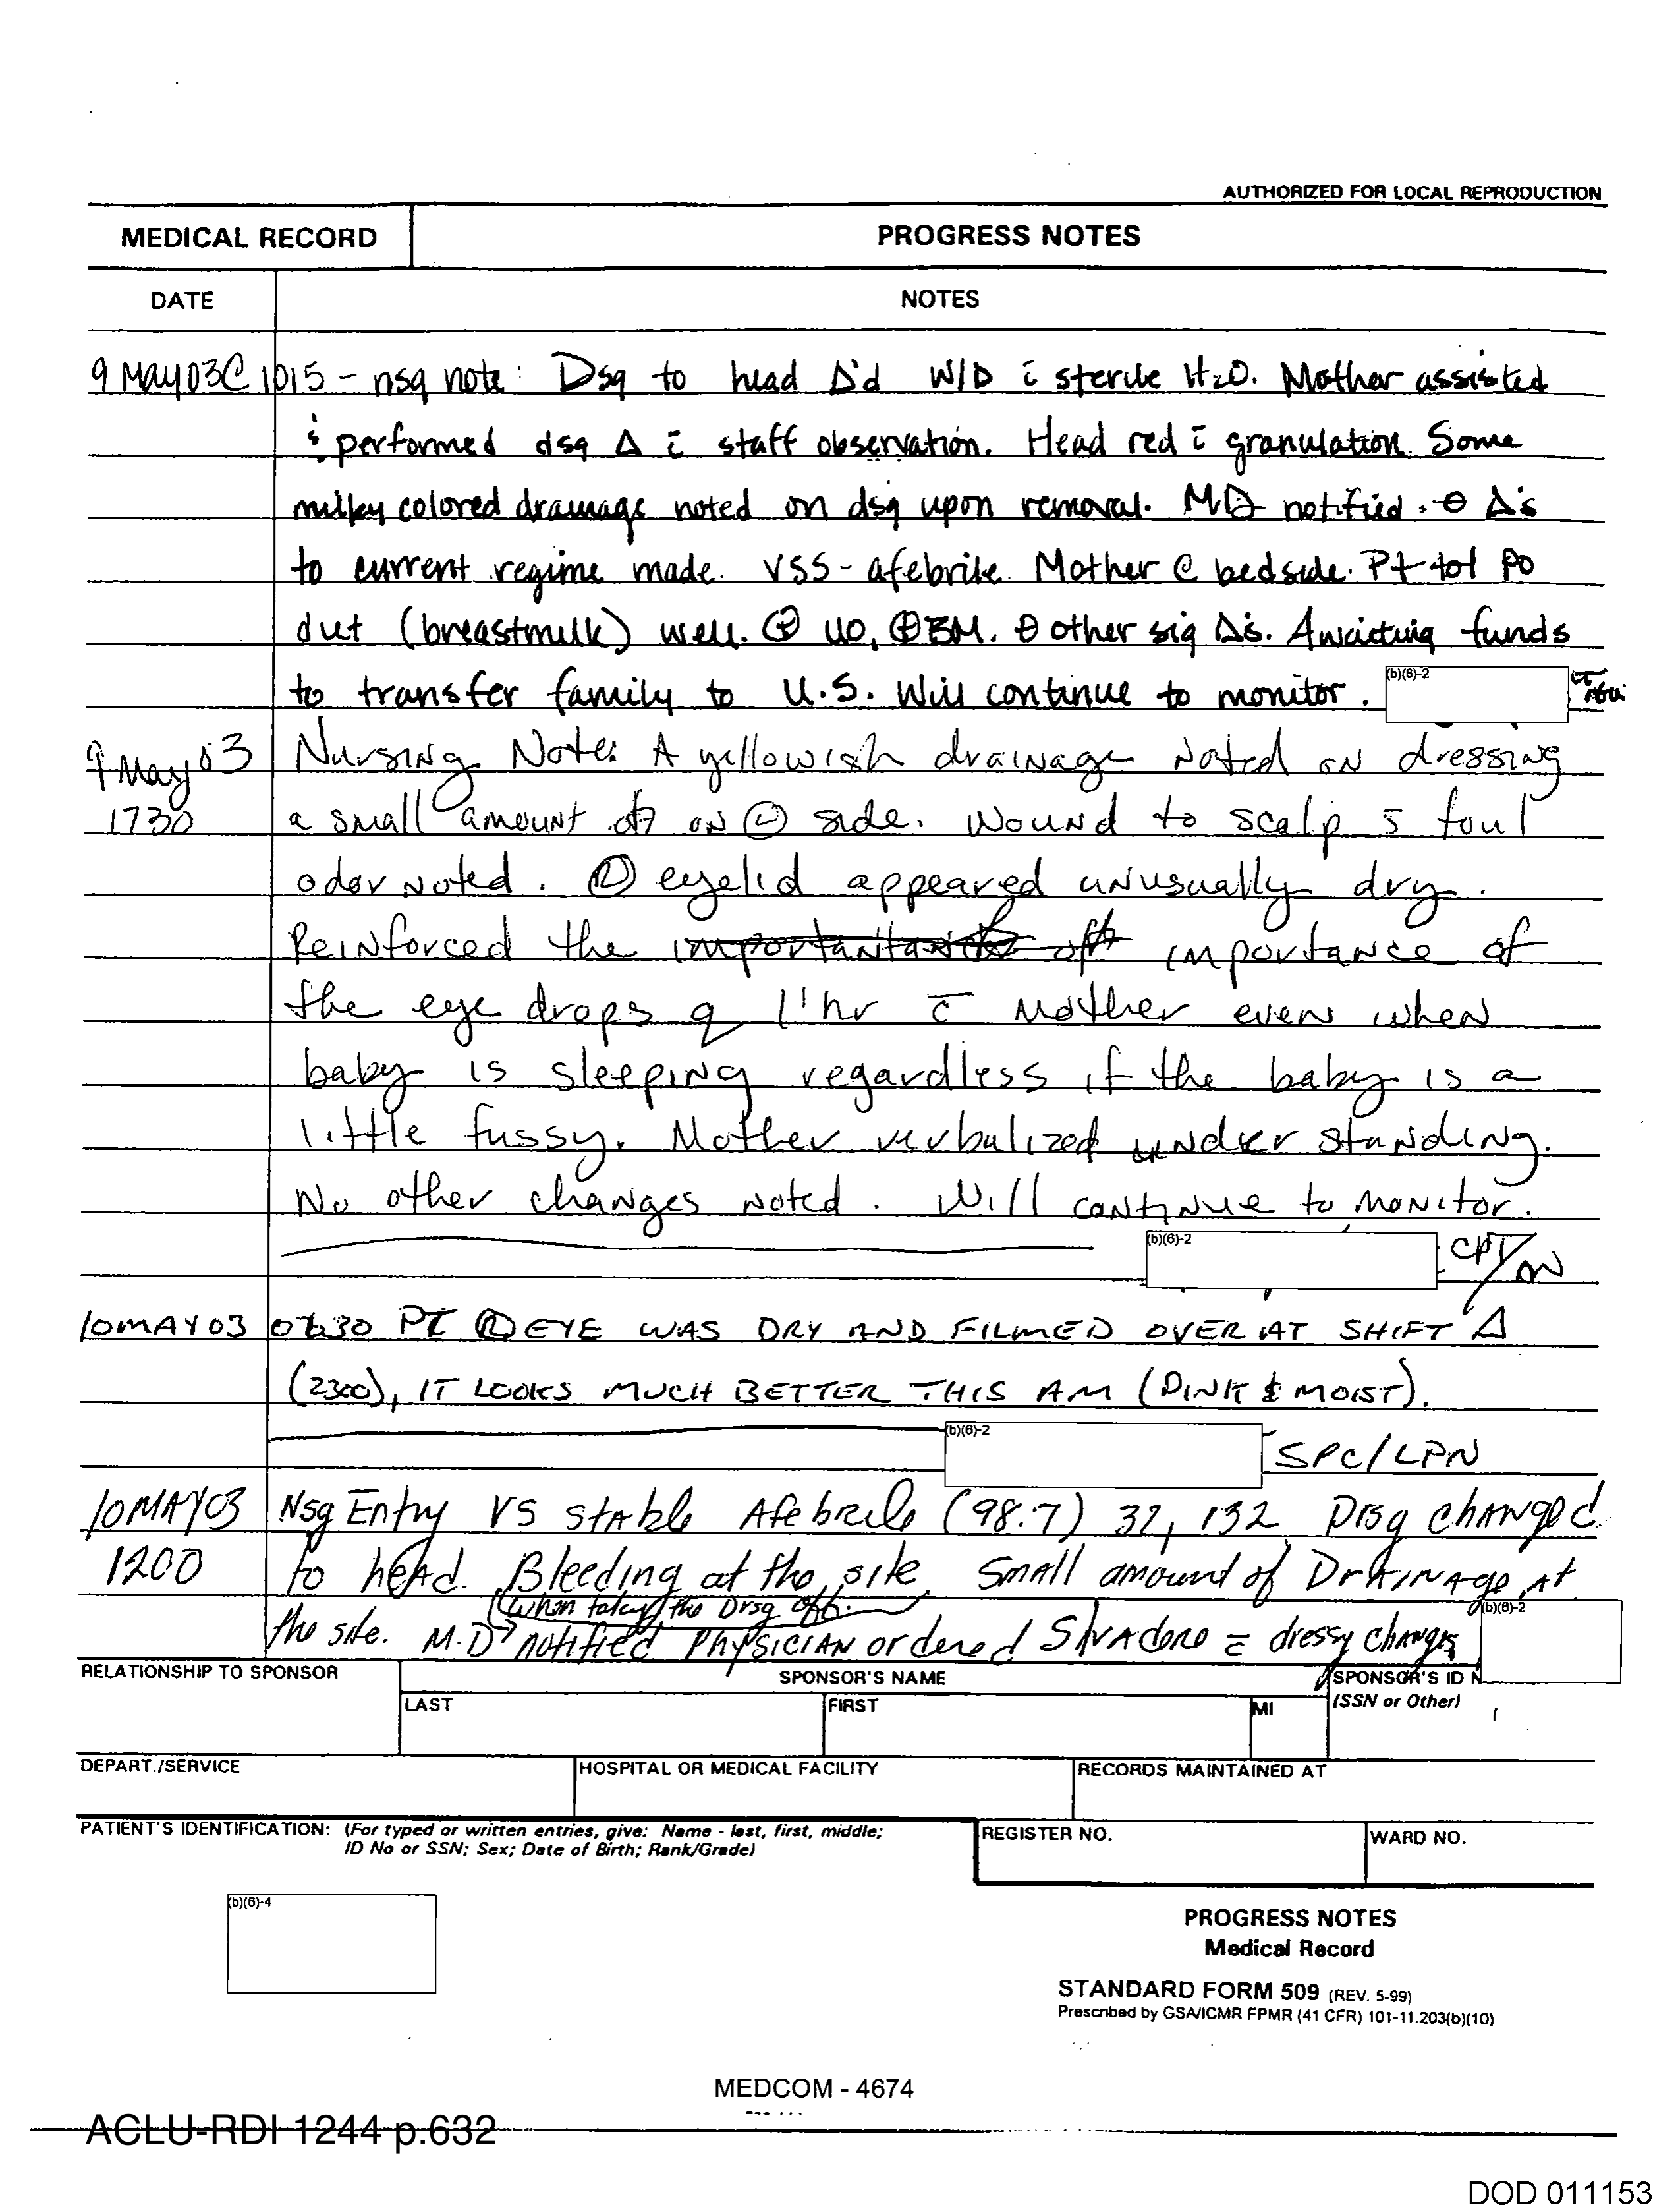 AUTHORIZED FOR LOCAL REPRODUCTION
MEDICAL RECORD PROGRESS NOTES
DATE NOTES
9 MAY 03 @ 1015 - nsg note: Dsg to head Δ'd W/D c̄ sterile H2O. Mother assisted
& performed dsg Δ c̄ staff observation. Head red c̄ granulation. Some
milky colored drainage noted on dsg upon removal. MD notified. ⊖ Δ's
to current regime made. VSS - afebrile. Mother @ bedside. Pt tol PO
diet (breastmilk) well. ⊕ UO, ⊕ BM. ⊖ other sig Δ's. Awaiting funds
to transfer family to U.S. Will continue to monitor. (b)(6)-2
9 May 03 Nursing Note: A yellowish drainage noted on dressing
1730 a small amount on Ⓛ side. Wound to scalp s̄ foul
odor noted. Ⓡ eyelid appeared unusually dry.
Reinforced the importance of
the eye drops q 1' hr c̄ Mother even when
baby is sleeping regardless if the baby is a
little fussy. Mother verbalized understanding.
No other changes noted. Will continue to monitor.
(b)(6)-2 CPT/AN
10 MAY 03 0630 PT Ⓡ EYE WAS DRY AND FILMED OVER AT SHIFT Δ
(2300), IT LOOKS MUCH BETTER THIS AM (PINK & MOIST).
(b)(6)-2 SPC/LPN
10 MAY 03 Nsg Entry VS stable Afebrile (98.7) 32, 132 Drsg changed
1200 to head. Bleeding at the site. Small amount of Drainage at
(when taking the Drsg off.
the site. M.D notified Physician ordered Silvadene c̄ dressy changes (b)(6)-2
RELATIONSHIP TO SPONSOR SPONSOR'S NAME SPONSOR'S ID N
LAST FIRST MI (SSN or Other)
DEPART./SERVICE HOSPITAL OR MEDICAL FACILITY RECORDS MAINTAINED AT
PATIENT'S IDENTIFICATION: (For typed or written entries, give: Name - last, first, middle; REGISTER NO. WARD NO.
ID No or SSN; Sex; Date of Birth; Rank/Grade)
(b)(6)-4
PROGRESS NOTES
Medical Record
STANDARD FORM 509 (REV. 5-99)
Prescribed by GSA/ICMR FPMR (41 CFR) 101-11.203(b)(10)
MEDCOM - 4674
ACLU-RDI 1244 p.632
DOD 011153